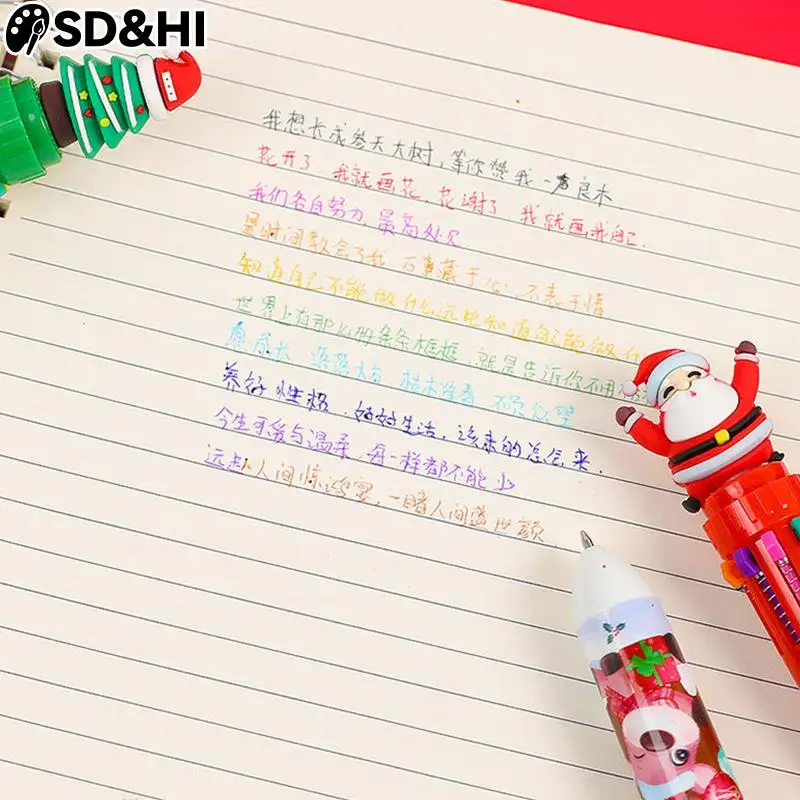 SD&HI
我想长成参天大树,等你赞我一声良木
花开了 我就画花,花谢了 我就画我自己.
我们各自努力,最高处见
是时间教会了我 万事藏于心,不表于情
知道自己不能做什么远比知道自己能做什
世界上有那么多条条框框,就是告诉你不用
愿成长 落落大方 枯木逢春 不负众望
养好性格,好好生活,该来的总会来.
今生可爱与温柔,每一样都不能少
远赴人间惊鸿宴,一睹人间盛世颜